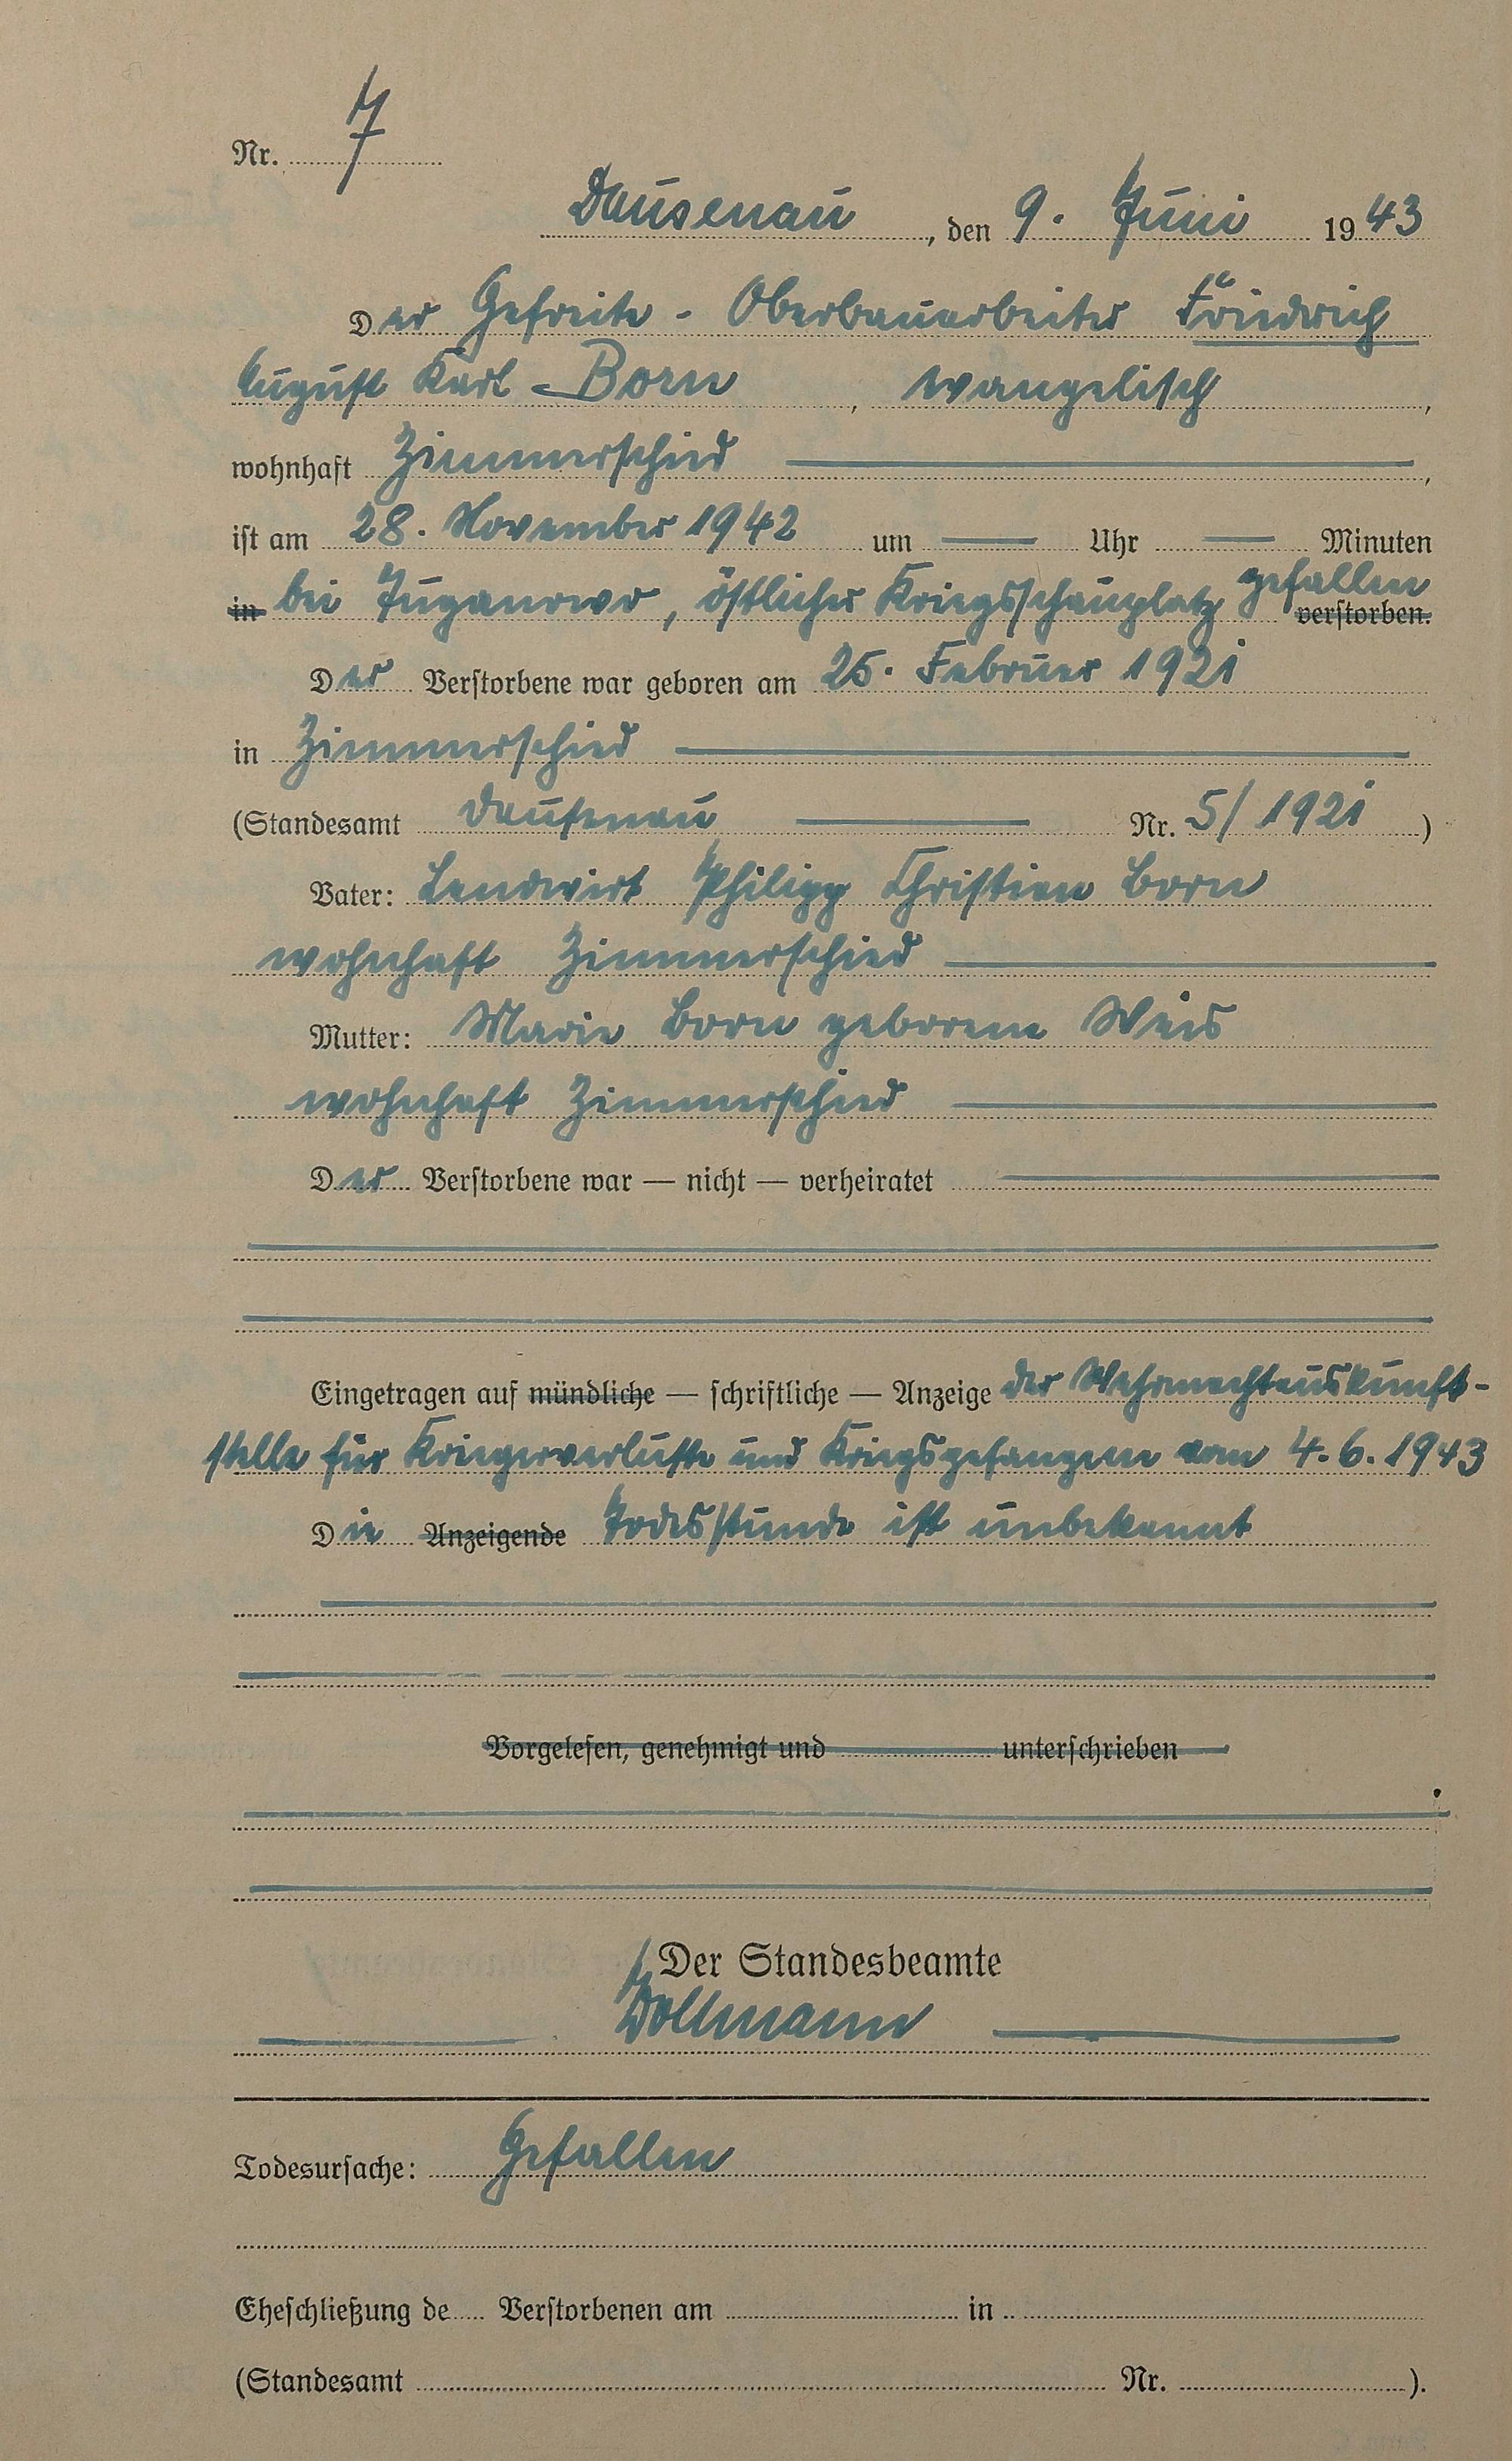 Nr. 7
Dausenau, den 9. Juni 1943
Der Gefreite - Oberbauarbeiter Friedrich
August Karl Born, evangelisch,
wohnhaft Zimmerschied,
ist am 28. November 1942 um — Uhr — Minuten
in bei, östlicher Kriegsschauplatz gefallen verstorben.
Der Verstorbene war geboren am 25. Februar 1921
in Zimmerschied
(Standesamt Dausenau Nr. 5/1921)
Vater: Landwirt Philipp Christian Born
wohnhaft Zimmerschied
Mutter: Marie Born geborene Weis
wohnhaft Zimmerschied
Der Verstorbene war — nicht — verheiratet
Eingetragen auf mündliche — schriftliche — Anzeige der Wehrmachtauskunft-
stelle für Kriegerverluste und Kriegsgefangene vom 4.6.1943
Die Anzeigende Todesstunde ist unbekannt
Vorgelesen, genehmigt und unterschrieben
Der Standesbeamte
Todesursache: Gefallen
Eheschließung de Verstorbenen am in
(Standesamt Nr. ).